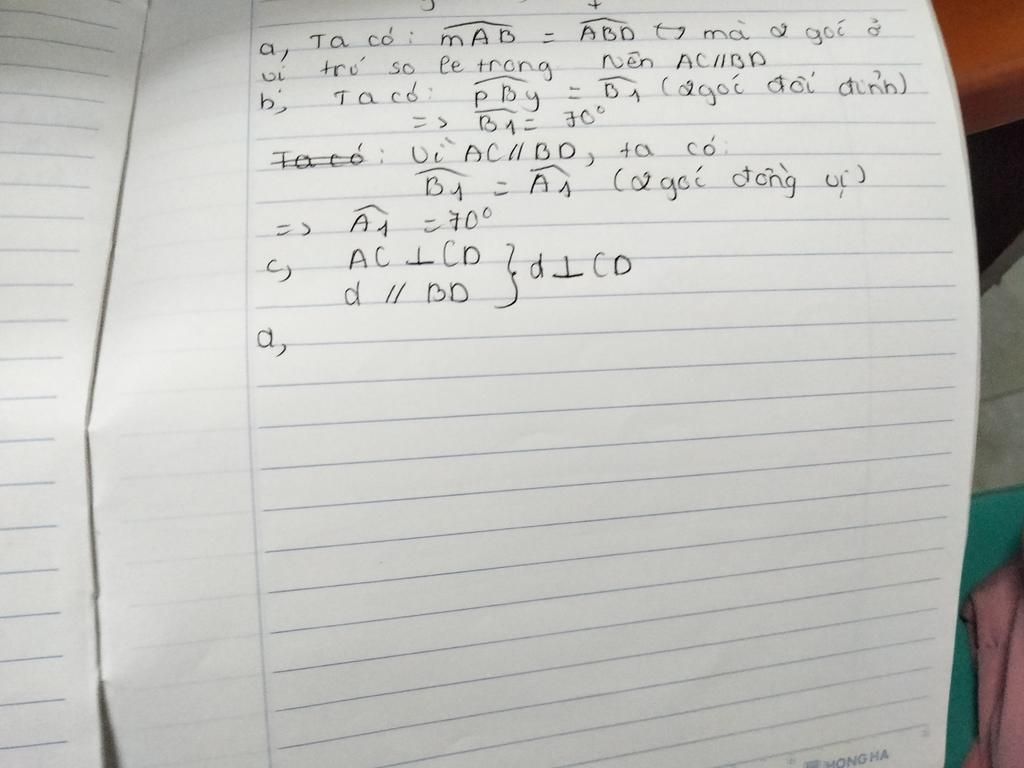 a, Ta có: mAB = ABD mà 2 góc ở
vị trí so le trong Nên AC//BD
b, Ta có: pBy = B1 (2 góc đối đỉnh)
=> B1 = 70°
Ta có: Vì AC//BD, ta có:
B1 = A1 (2 góc đồng vị)
=> A1 = 70°
c, AC ⊥ CD } d ⊥ CD
d // BD
d,
HONG HA